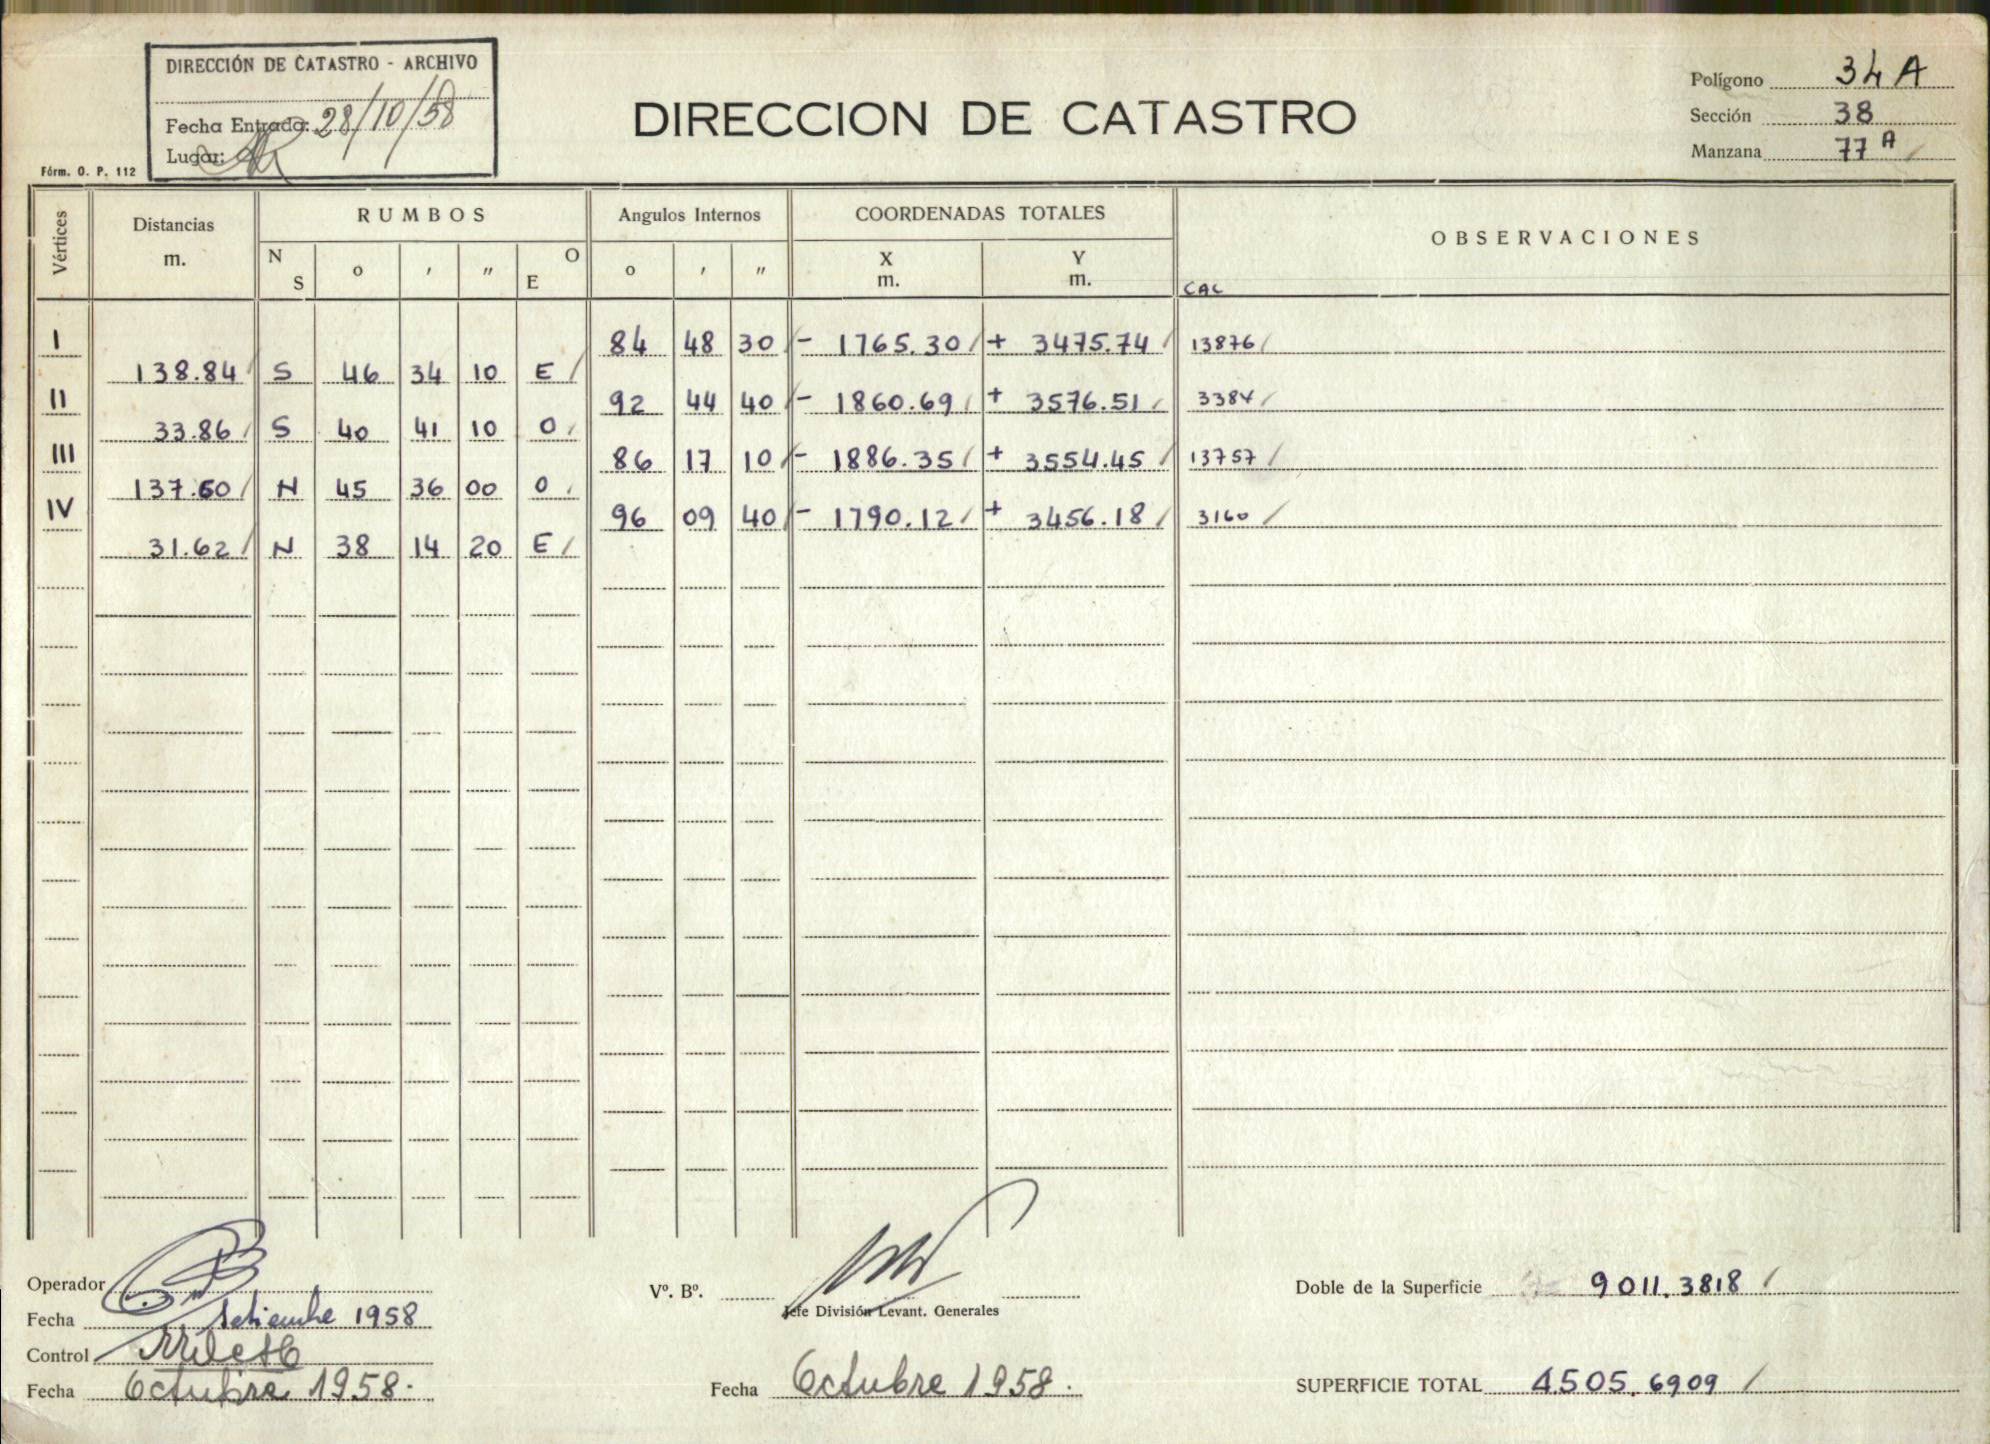 DIRECCIÓN DE CATASTRO - ARCHIVO
Fecha Entrada: 28/10/58
Lugar:
Fórm. O. P. 112
DIRECCION DE CATASTRO
Polígono 34 A
Sección 38
Manzana 77 A
Vértices
Distancias
m.
RUMBOS
N S
o
'
"
O E
Angulos Internos
o
'
"
COORDENADAS TOTALES
X
m.
Y
m.
OBSERVACIONES
CAL
I 84 48 30 - 1765.30 + 3475.74 13876
138.84 S 46 34 10 E
II 92 44 40 - 1860.69 + 3576.51 3384
33.86 S 40 41 10 O
III 86 17 10 - 1886.35 + 3554.45 13757
137.60 N 45 36 00 O
IV 96 09 40 - 1790.12 + 3456.18 3160
31.62 N 38 14 20 E
Operador
Fecha Setiembre 1958
Control
Fecha Octubre 1958.
Vº. Bº.
Jefe División Levant. Generales
Fecha Octubre 1958.
Doble de la Superficie 9011.3818
SUPERFICIE TOTAL 4505.6909